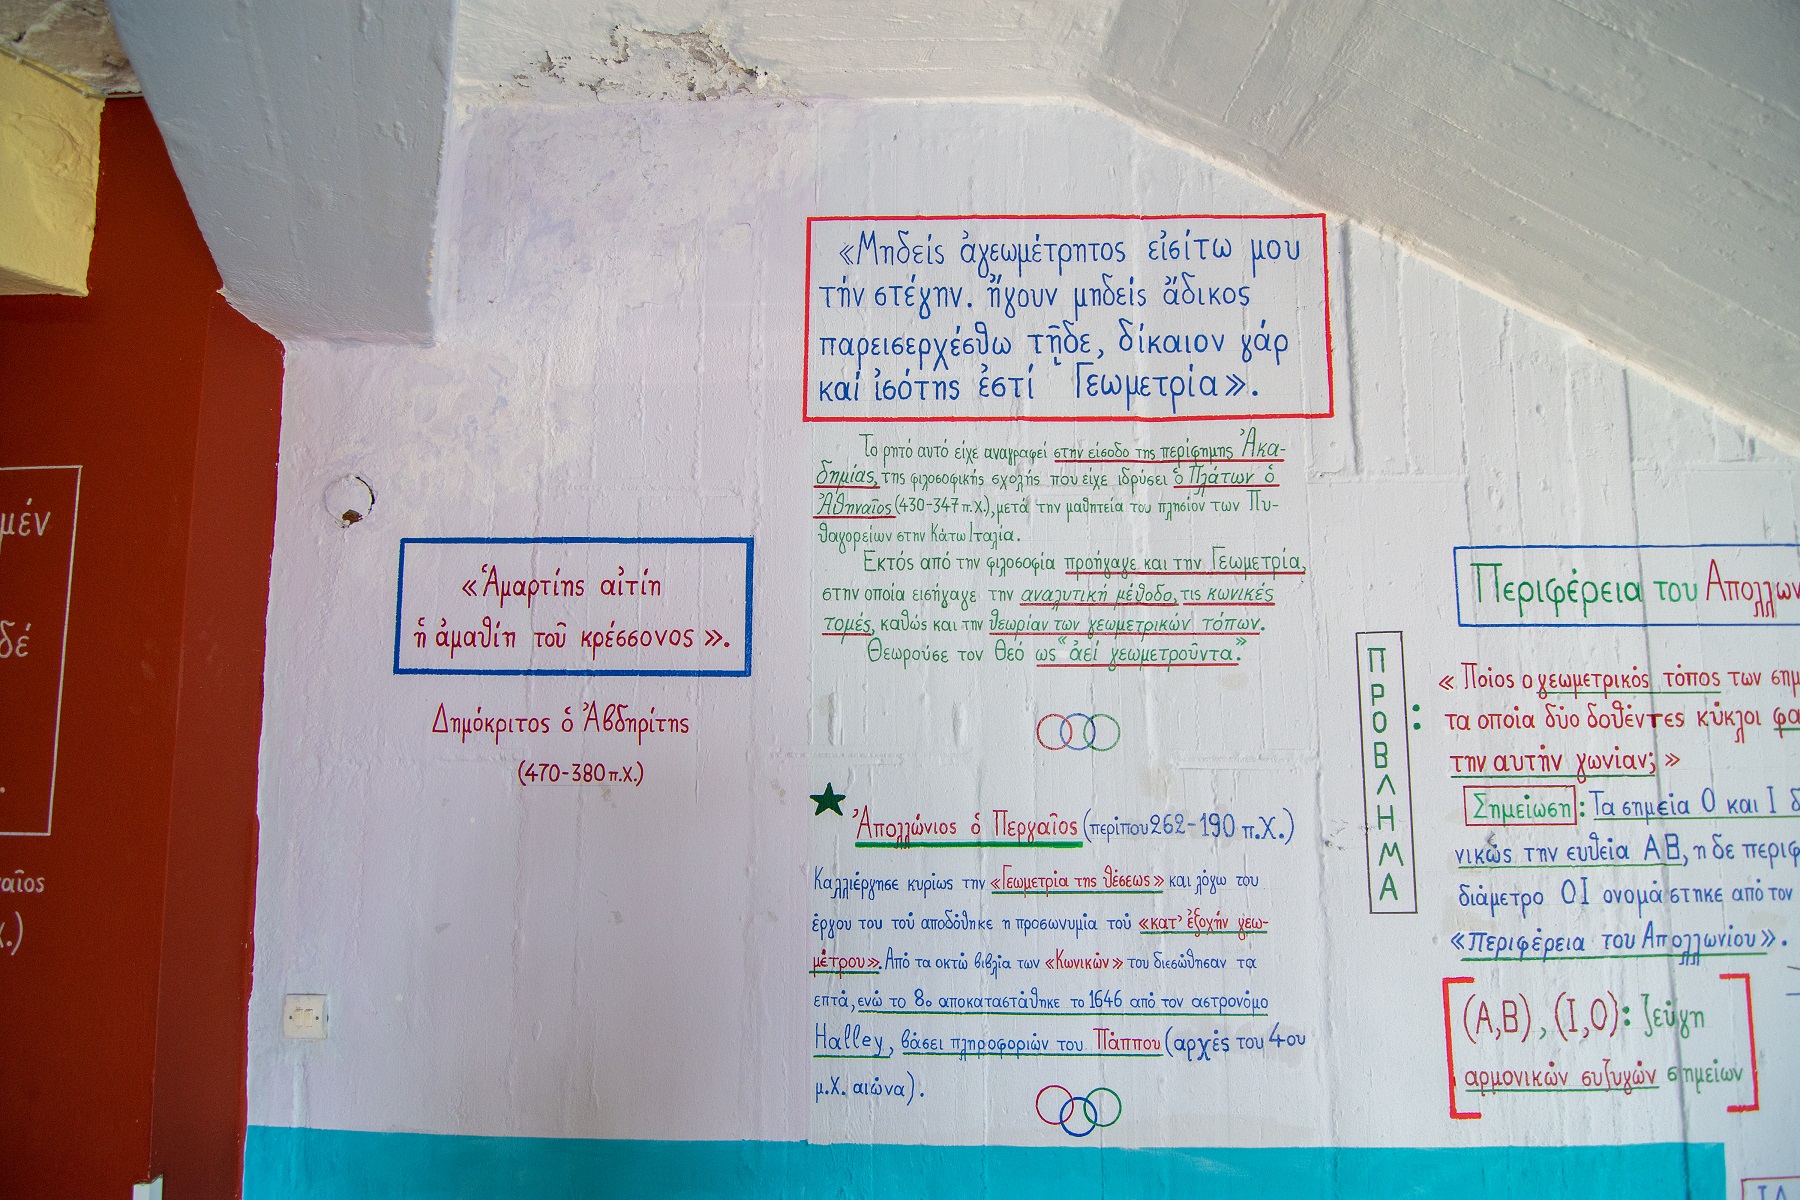 «Μηδείς ἀγεωμέτρητος εἰσίτω μου
τήν στέγην. ἤγουν μηδείς ἄδικος
παρεισερχέσθω τῇδε, δίκαιον γάρ
καί ἰσότης ἐστί ἡ Γεωμετρία».
Το ρητό αυτό είχε αναγραφεί στην είσοδο της περίφημης Ἀκα-
δημίας, της φιλοσοφικής σχολής που είχε ιδρύσει ὁ Πλάτων ὁ
Ἀθηναῖος (430-347 π.Χ.), μετά την μαθητεία του πλησίον των Πυ-
θαγορείων στην Κάτω Ιταλία.
Εκτός από την φιλοσοφία προήγαγε και την Γεωμετρία,
στην οποία εισήγαγε την αναλυτική μέθοδο, τις κωνικές
τομές, καθώς και την θεωρίαν των γεωμετρικών τόπων.
Θεωρούσε τον Θεό ως "ἀεί γεωμετροῦντα."
«Ἁμαρτίης αἰτίη
ἡ ἀμαθίη τοῦ κρέσσονος».
Δημόκριτος ὁ Ἀβδηρίτης
(470-380 π.Χ.)
Ἀπολλώνιος ὁ Περγαῖος (περίπου 262-190 π.Χ.)
Καλλιέργησε κυρίως την «Γεωμετρία της θέσεως» και λόγω του
έργου του τού αποδόθηκε η προσωνυμία τού «κατ' ἐξοχήν γεω-
μέτρου». Από τα οκτώ βιβλία των «Κωνικών» του διεσώθησαν τα
επτά, ενώ το 8ο αποκαταστάθηκε το 1646 από τον αστρονόμο
Halley, βάσει πληροφοριών του Πάππου (αρχές του 4ου
μ.Χ. αιώνα).
Περιφέρεια του Απολλων
ΠΡΟΒΛΗΜΑ:
« Ποίος ο γεωμετρικός τόπος των σημ
τα οποία δύο δοθέντες κύκλοι φα
την αυτήν γωνίαν; »
Σημείωση: Τα σημεία Ο και Ι δ
νικώς την ευθεία ΑΒ, η δε περιφ
διάμετρο ΟΙ ονομάστηκε από τον
«περιφέρεια του Απολλωνίου».
(Α,Β), (Ι,Ο): ζεύγη
αρμονικών συζυγών σημείων
μέν
δέ
.
ναῖος
Χ.)